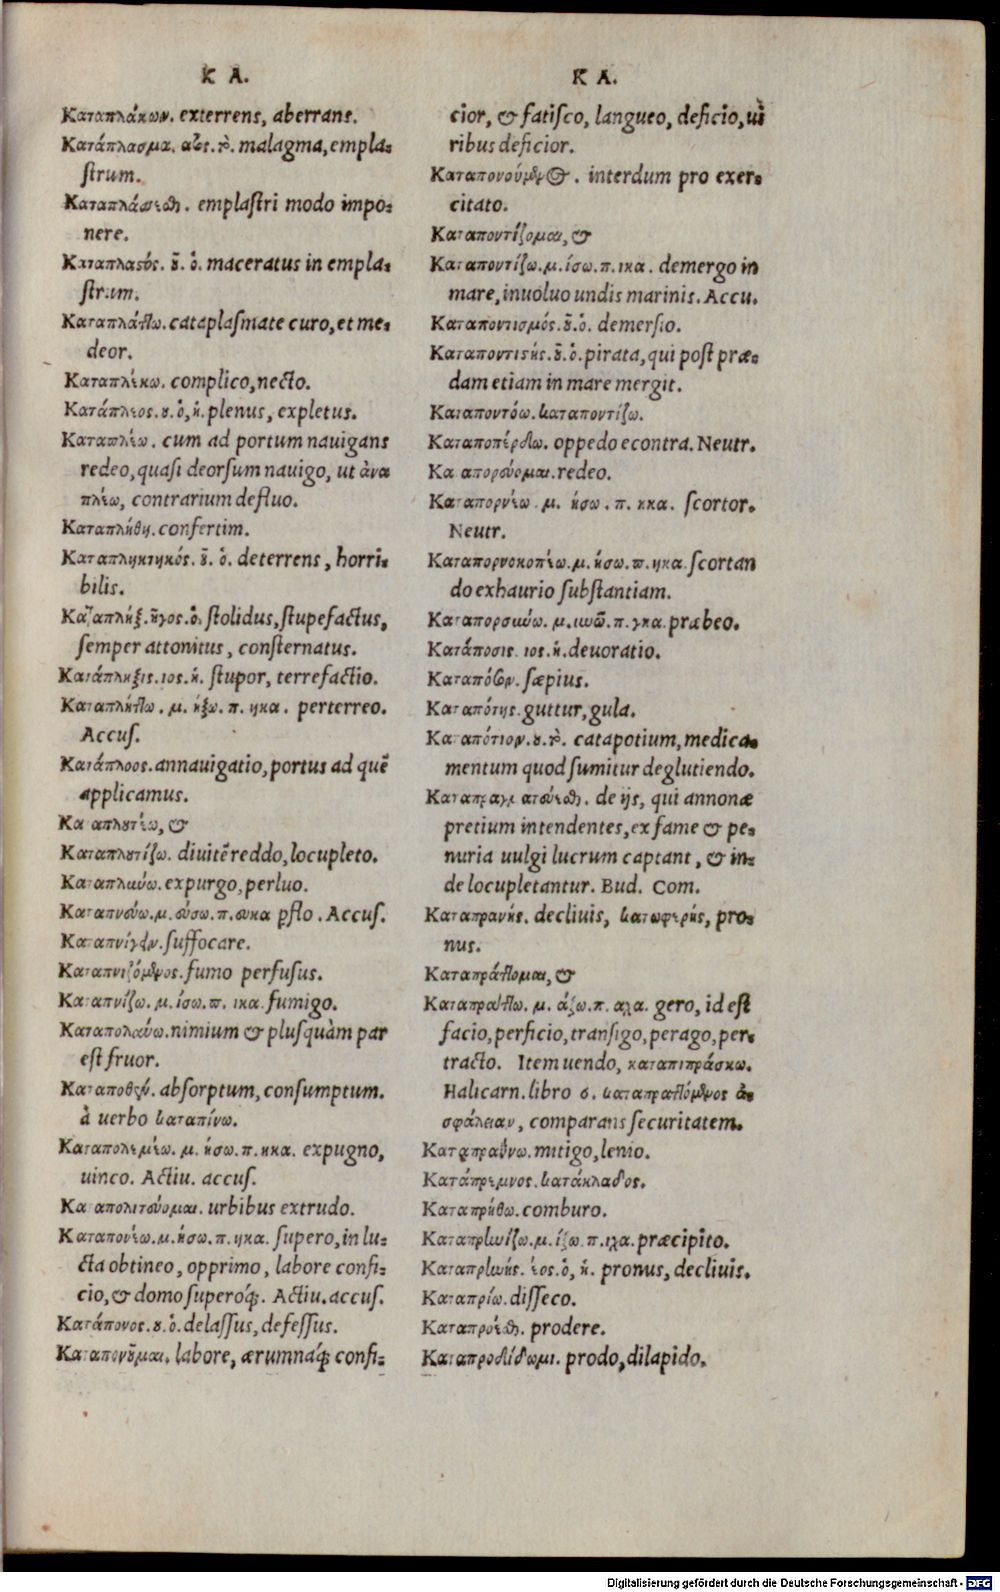 Κ Α.
Καταπλάκων. exterrens, aberrans.
Κατάπλασμα. ατος. τὸ. malagma, empla-
ſtrum.
Καταπλάσσειν. emplaſtri modo impo-
nere.
Καταπλαστός. οῦ. ὁ. maceratus in empla-
ſtrum.
Καταπλάττω. cataplaſmate curo, et me-
deor.
Καταπλέκω. complico, necto.
Κατάπλεος. ου. ὁ, ἡ. plenus, expletus.
Καταπλέω. cum ad portum nauigans
redeo, quaſi deorſum nauigo, ut ἀνα
πλέω, contrarium defluo.
Καταπλήθη. confertim.
Καταπληκτηκός. οῦ. ὁ. deterrens, horri-
bilis.
Καταπλήξ. ῆγος. ὁ. ſtolidus, ſtupefactus,
ſemper attonitus, conſternatus.
Κατάπληξις. ιος. ἡ. ſtupor, terrefactio.
Καταπλήττω. μ. ήξω. π. ηκα. perterreo.
Accuſ.
Κατάπλοος. annauigatio, portus ad quẽ
applicamus.
Κα απλουτέω, &
Καταπλουτίζω. diuitẽ reddo, locupleto.
Καταπλύνω. expurgo, perluo.
Καταπνεύω. μ. εύσω. π. ευκα ꝑflo. Accuſ.
Καταπνίγειν. ſuffocare.
Καταπνιζόμενος. fumo perfuſus.
Καταπνίζω. μ. ίσω. π. ικα. fumigo.
Καταπολαύω. nimium & pluſquàm par
eſt fruor.
Καταποθεν. abſorptum, conſumptum.
à uerbo καταπίνω.
Καταπολεμέω. μ. ήσω. π. ηκα. expugno,
uinco. Actiu. accuſ.
Κα απολιτεύομαι. urbibus extrudo.
Καταπονέω. μ. ήσω. π. ηκα. ſupero, in lu-
cta obtineo, opprimo, labore confi-
cio, & domo ſuperoq́;. Actiu. accuſ.
Κατάπονος. ου. ὁ. delaſſus, defeſſus.
Καταπονοῦμαι. labore, ærumnaq́; confi-
Κ Α.
cior, & fatiſco, langueo, deficio, ui
ribus deficior.
Καταπονούμενος. interdum pro exer-
citato.
Καταποντίζομαι, &
Καταποντίζω. μ. ίσω. π. ικα. demergo in
mare, inuoluo undis marinis. Accu.
Καταποντισμός. οῦ. ὁ. demerſio.
Καταποντιστής. οῦ. ὁ. pirata, qui poſt præ-
dam etiam in mare mergit.
Καταποντόω. καταποντίζω.
Καταποπέρδω. oppedo econtra. Neutr.
Κα απορεύομαι. redeo.
Καταπορνέω. μ. ήσω. π. ηκα. ſcortor.
Neutr.
Καταπορνοκοπέω. μ. ήσω. π. ηκα. ſcortan
do exhaurio ſubſtantiam.
Καταπορσύνω. μ. υνῶ. π. γκα. præbeo.
Κατάποσις. ιος. ἡ. deuoratio.
ſæpius.
Καταπότης. guttur, gula.
Καταπότιον. ου. τὸ. catapotium, medica-
mentum quod ſumitur deglutiendo.
Καταπραγματεύεσθαι. de ijs, qui annonæ
pretium intendentes, ex fame & pe-
nuria uulgi lucrum captant, & in-
de locupletantur. Bud. Com.
Καταπρανής. decliuis, κατωφερής, pro-
nus.
Καταπράττομαι, &
Καταπράττω. μ. άξω. π. αχα. gero, id eſt
facio, perficio, tranſigo, perago, per-
tracto. Item uendo, καταπιπράσκω.
Halicarn. libro ϛ. καταπραττόμενος ἀ-
σφάλειαν, comparans ſecuritatem.
Καταπραΰνω. mitigo, lenio.
Κατάπρεμνος. κατάκλαδος.
Καταπρήθω. comburo.
Καταπρηνίζω. μ. ίξω. π. ιχα. præcipito.
Καταπρηνής. έος. ὁ, ἡ. pronus, decliuis.
Καταπρίω. diſſeco.
Καταπροέσθαι. prodere.
Καταπροδίδωμι. prodo, dilapido.
Digitalisierung gefördert durch die Deutsche Forschungsgemeinschaft - DFG